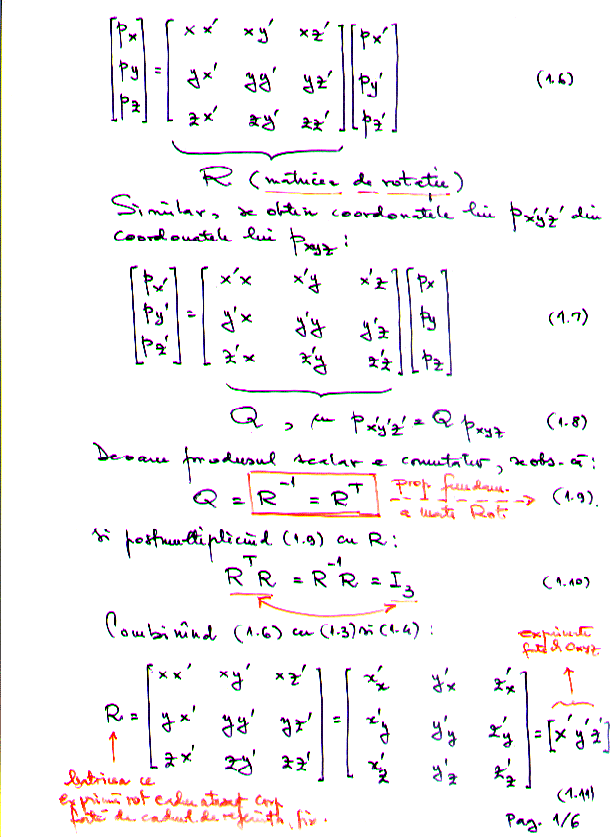 [px py pz] = [xx' xy' xz'; yx' yy' yz'; zx' zy' zz'] [px' py' pz'] (1.6)
R (matricea de rotație)
Similar, se obțin coordonatele lui px'y'z' din
coordonatele lui pxyz:
[px' py' pz'] = [x'x x'y x'z; y'x y'y y'z; z'x z'y z'z] [px py pz] (1.7)
Q, cu px'y'z' = Q pxyz (1.8)
Deoarece produsul scalar e comutativ, se obs. că:
Q = R⁻¹ = Rᵀ prop. fundam. a matr. Rot. (1.9).
și postmultiplicînd (1.9) cu R:
RᵀR = R⁻¹R = I₃ (1.10)
Combinînd (1.6) cu (1.3) și (1.4):
exprimate
față de Oxyz
R = [xx' xy' xz'; yx' yy' yz'; zx' zy' zz'] = [x'x y'x z'x; x'y y'y z'y; x'z y'z z'z] = [x' y' z']
(1.11)
Matricea ce
exprimă rot cadru atașat corp
față de cadrul de referință, fix.
Pag. 1/6